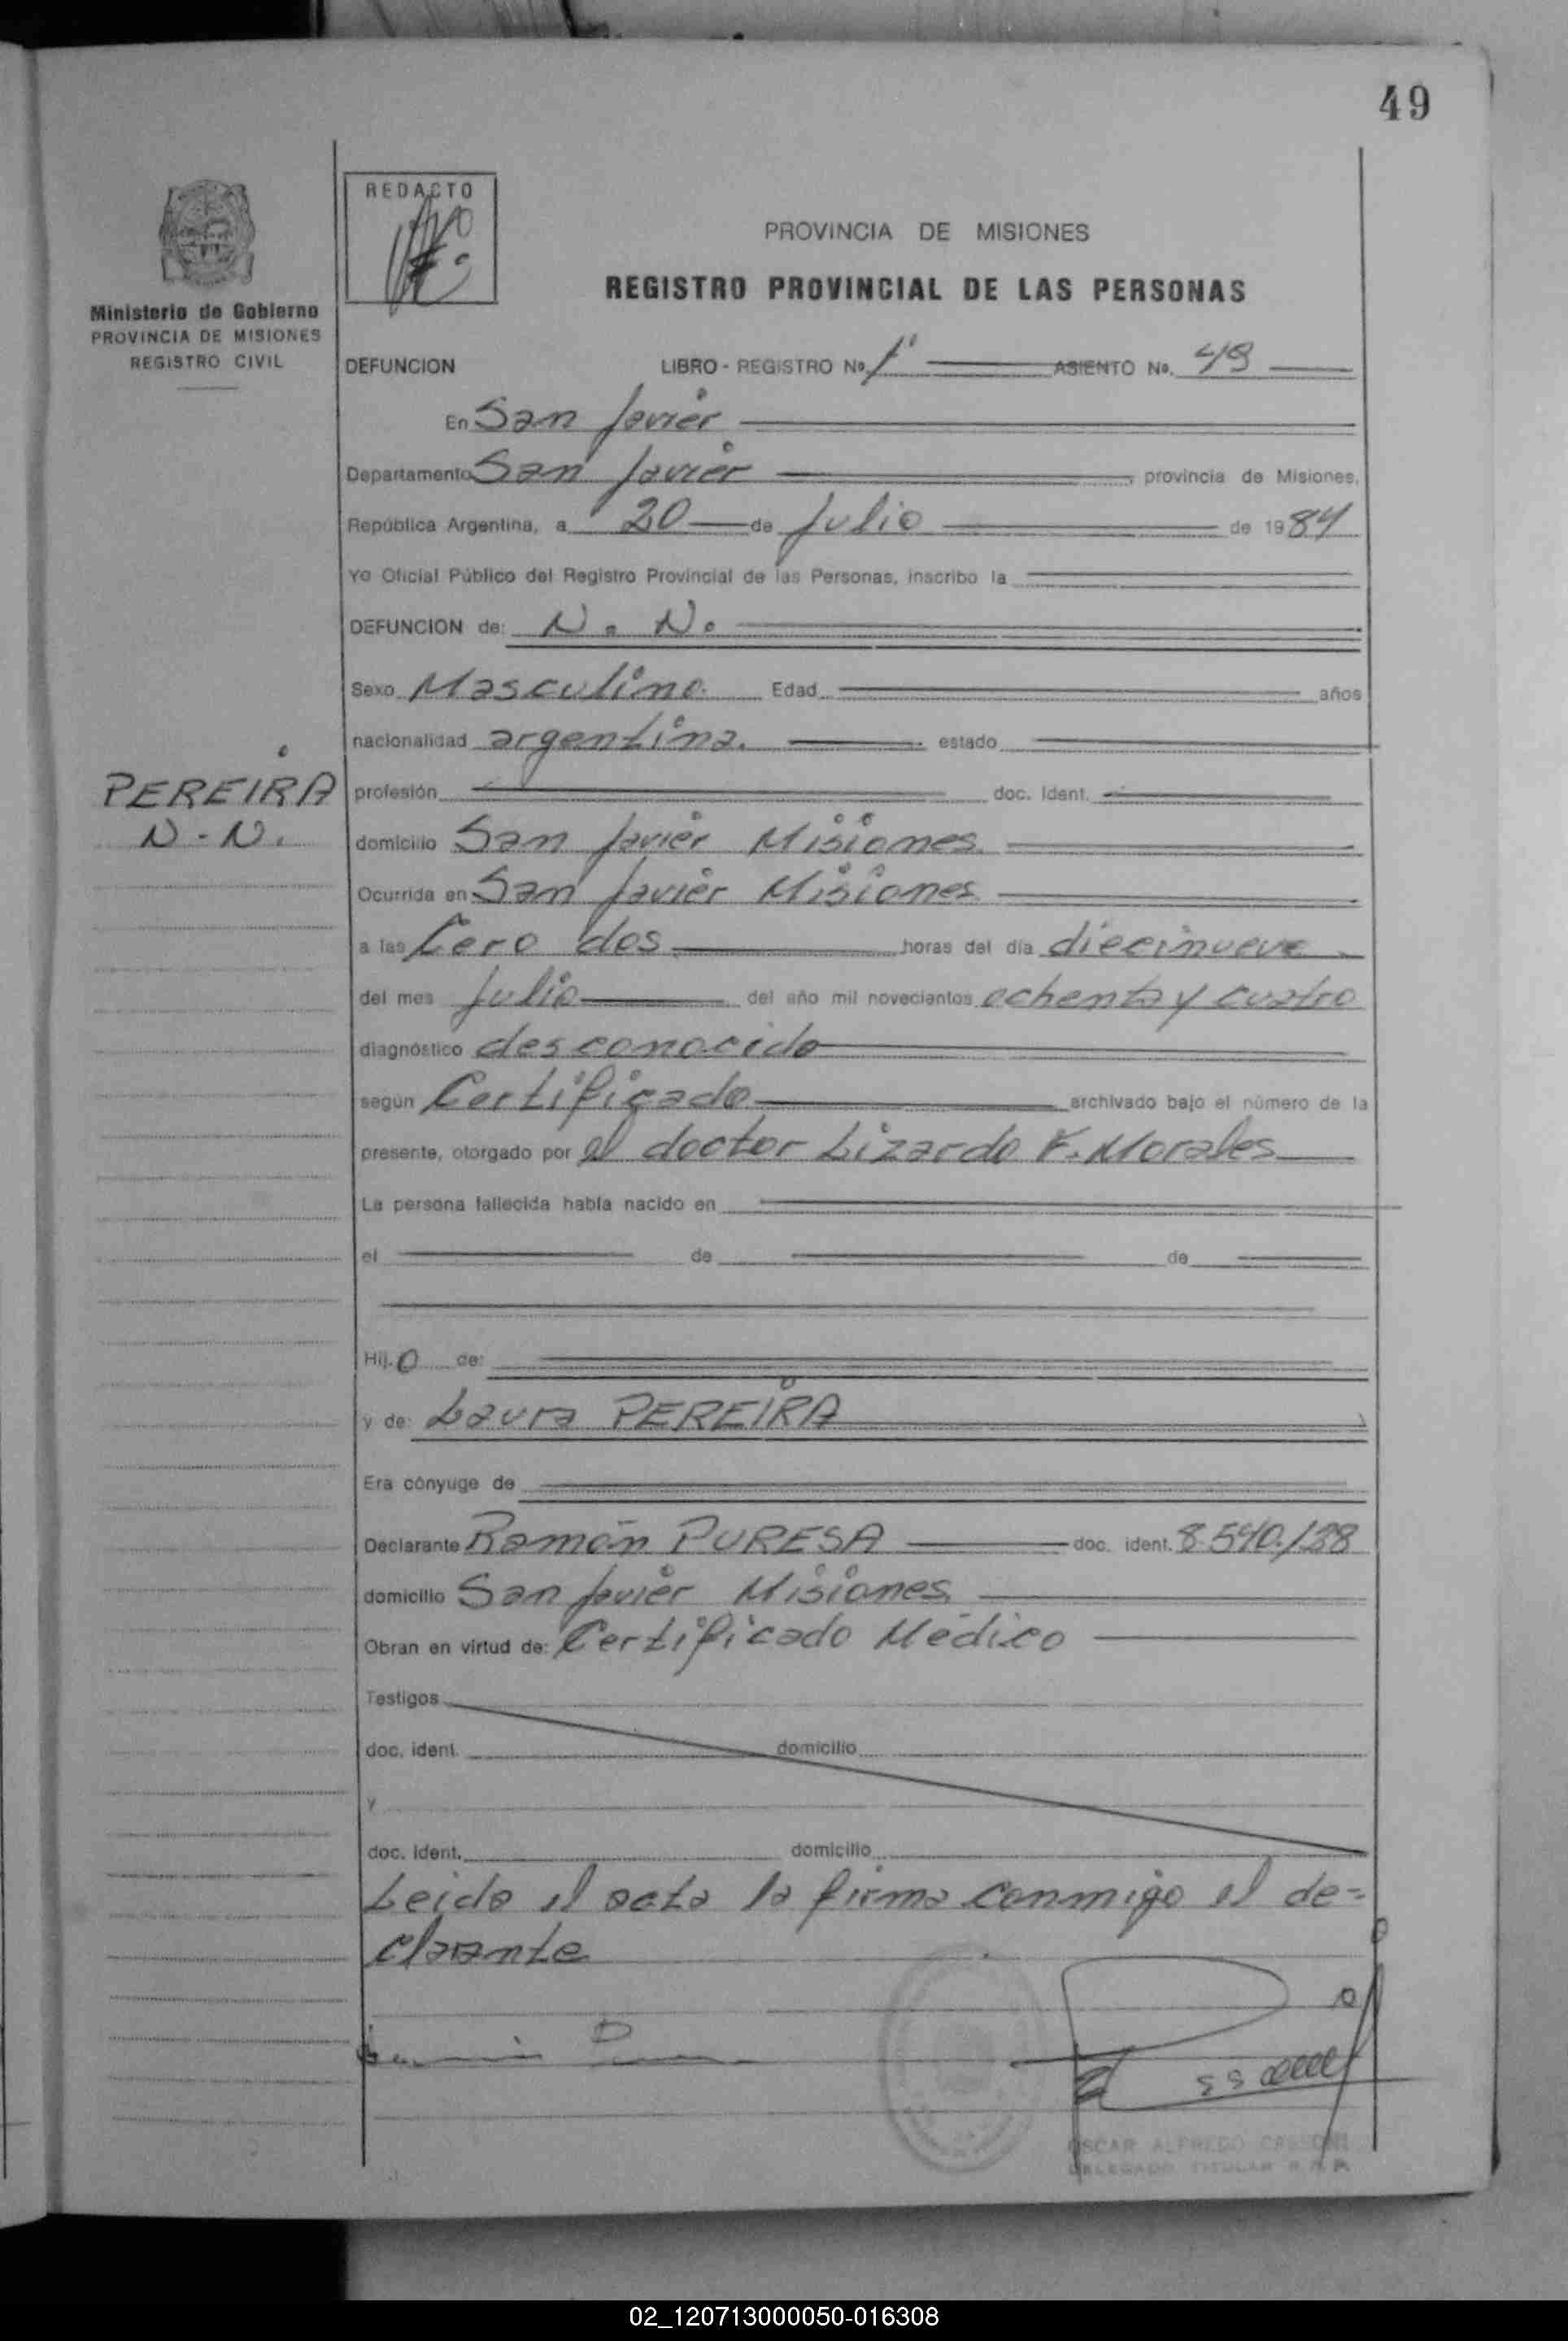 49
REDACTO
PROVINCIA DE MISIONES
REGISTRO PROVINCIAL DE LAS PERSONAS
Ministerio de Gobierno
PROVINCIA DE MISIONES
REGISTRO CIVIL
DEFUNCION LIBRO - REGISTRO No. 1° ASIENTO No.
En San Javier
Departamento San Javier provincia de Misiones,
República Argentina, a 20 de Julio de 1984
Yo Oficial Público del Registro Provincial de las Personas, inscribo la
DEFUNCION de: N. N.
Sexo Masculino. Edad años
nacionalidad argentina. estado
PEREIRA
N-N.
profesión doc. ident.
domicilio San Javier Misiones
Ocurrida en San Javier Misiones
a las Cero dos horas del día diecinueve
del mes Julio del año mil novecientos ochenta y cuatro
diagnóstico desconocido
según Certificado archivado bajo el número de la
presente, otorgado por el doctor Lizardo F. Morales
La persona fallecida había nacido en
el de de
Hij.o de:
y de: Laura PEREIRA
Era cónyuge de
Declarante Ramón PURESA doc. ident. 8.540.138
domicilio San Javier Misiones
Obran en virtud de: Certificado Médico
Testigos
doc. ident. domicilio
y
doc. ident. domicilio
Leida el acta la firma conmigo el de=
clarante
OSCAR ALFREDO
DELEGADO TITULAR R.P.P.
02_120713000050-016308